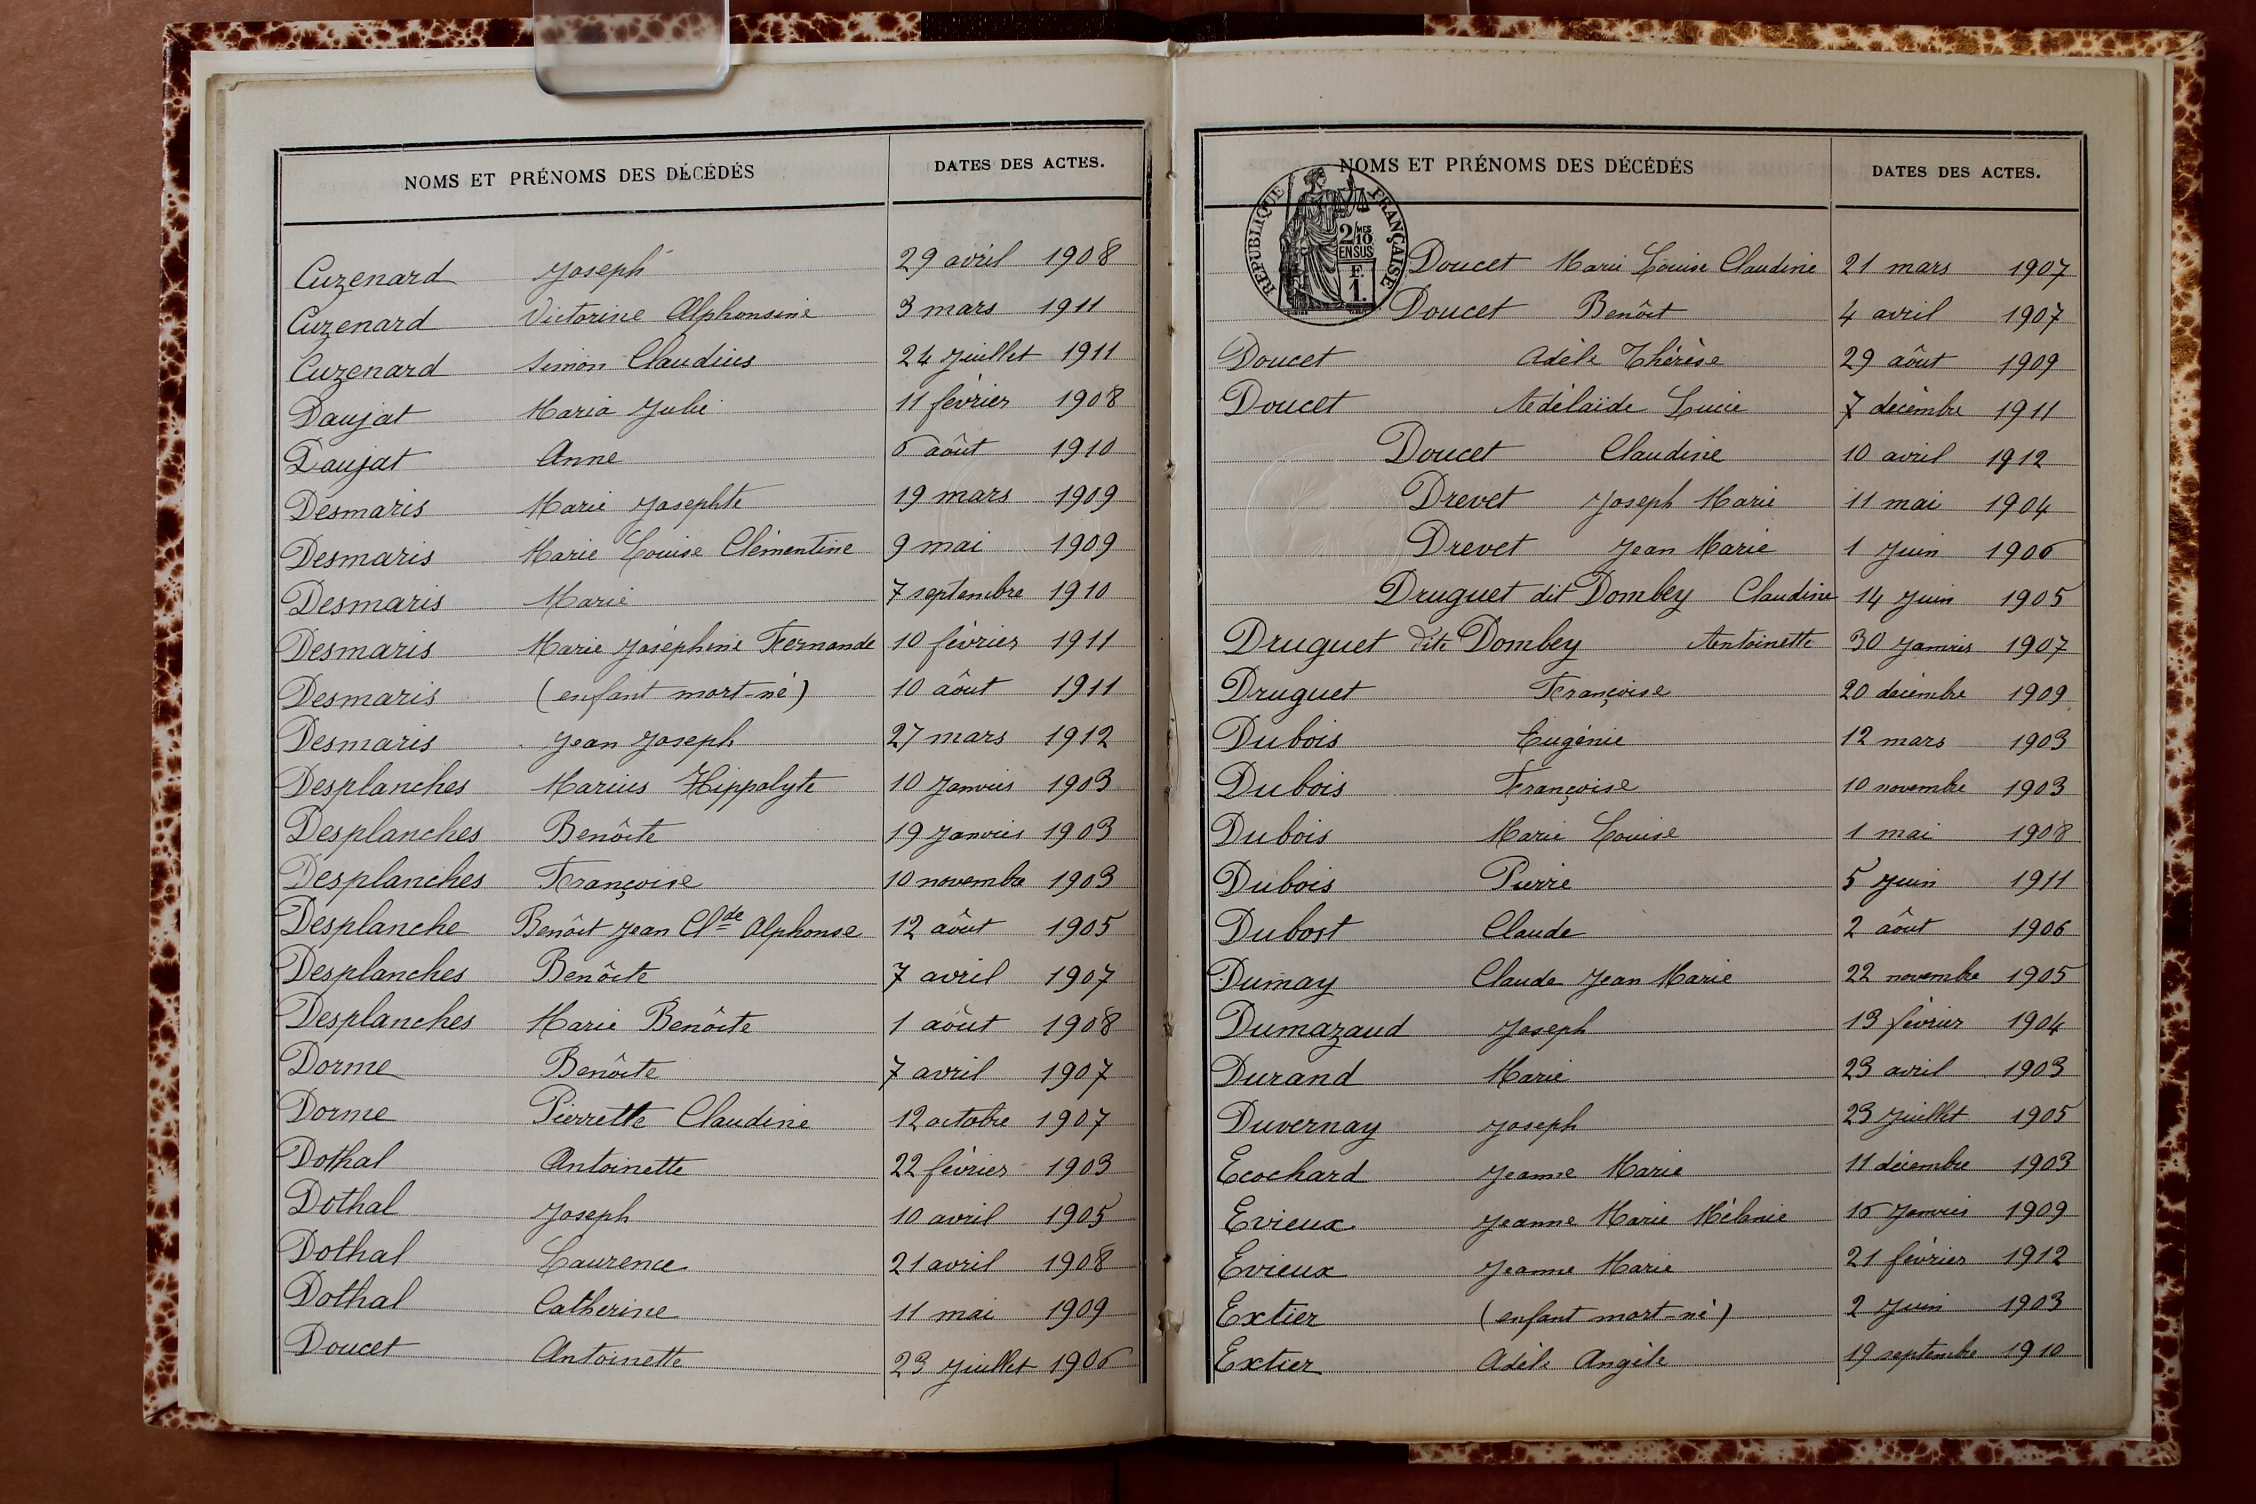 NOMS ET PRÉNOMS DES DÉCÉDÉS DATES DES ACTES.
Cuzenard Joseph 29 avril 1908
Cuzenard Victorine Alphonsine 3 mars 1911
Cuzenard Simon Claudius 24 Juillet 1911
Daujat Maria Julie 11 février 1908
Daujat Anne 6 août 1910
Desmaris Marie Josephte 19 mars 1909
Desmaris Marie Louise Clémentine 9 mai 1909
Desmaris Marie 7 septembre 1910
Desmaris Marie Joséphine Fernande 10 février 1911
Desmaris (enfant mort-né) 10 août 1911
Desmaris Jean Joseph 27 mars 1912
Desplanches Marius Hippolyte 10 Janvier 1903
Desplanches Benôite 19 Janvier 1903
Desplanches Françoise 10 novembre 1903
Desplanche Benôit Jean Clde Alphonse 12 août 1905
Desplanches Benôite 7 avril 1907
Desplanches Marie Benôite 1 août 1908
Dorme Benôite 7 avril 1907
Dorme Pierrette Claudine 12 octobre 1907
Dothal Antoinette 22 février 1903
Dothal Joseph 10 avril 1905
Dothal Laurence 21 avril 1908
Dothal Catherine 11 mai 1909
Doucet Antoinette 23 Juillet 1906
NOMS ET PRÉNOMS DES DÉCÉDÉS DATES DES ACTES.
RÉPUBLIQUE FRANÇAISE
2/10 MES
EN SUS
F.
1.
Doucet Marie Louise Claudine 21 mars 1907
Doucet Benôit 4 avril 1907
Doucet Adèle Thérèse 29 août 1909
Doucet Adélaïde Lucie 7 décembre 1911
Doucet Claudine 10 avril 1912
Drevet Joseph Marie 11 mai 1904
Drevet Jean Marie 1 Juin 1906
Druguet dit Dombey Claudine 14 Juin 1905
Druguet dite Dombey Antoinette 30 Janvier 1907
Druguet Françoise 20 décembre 1909
Dubois Eugénie 12 mars 1903
Dubois Françoise 10 novembre 1903
Dubois Marie Louise 1 mai 1908
Dubois Pierre 5 Juin 1911
Dubost Claude 2 août 1906
Dumay Claude Jean Marie 22 novembre 1905
Dumazaud Joseph 13 février 1904
Durand Marie 23 avril 1903
Duvernay Joseph 23 Juillet 1905
Ecochard Jeanne Marie 11 décembre 1903
Evieux Jeanne Marie Mélanie 16 Janvier 1909
Evieux Jeanne Marie 21 février 1912
Extier (enfant mort-né) 2 Juin 1903
Extier Adèle Angèle 19 septembre 1910